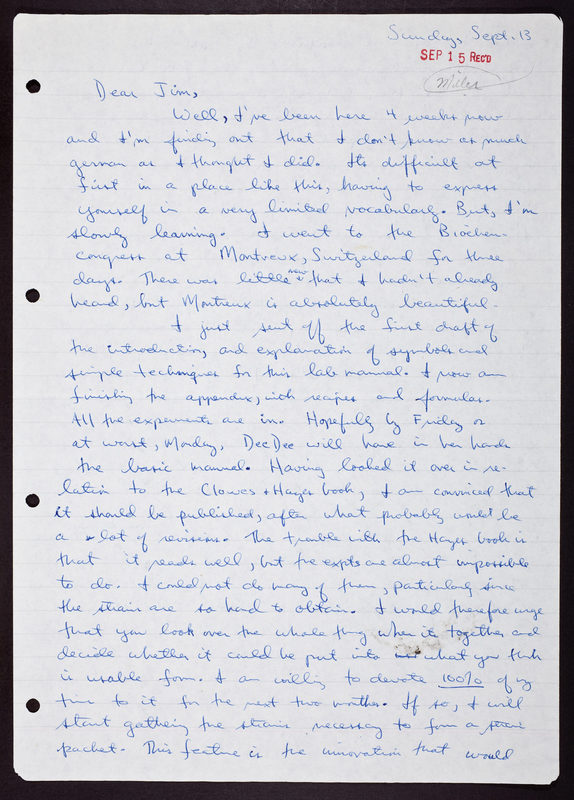 Sunday, Sept. 13
SEP 15 REC'D
Miller
Dear Jim,
Well, I've been here 4 weeks now
and I'm finding out that I don't know as much
german as I thought I did. Its difficult at
first in a place like this, having to express
yourself in a very limited vocabulary. But, I'm
slowly learning. I went to the Biochem-
congress at Montreux, Switzerland for three
days. There was little new that I hadn't already
heard, but Montreux is absolutely beautiful.
I just sent off the first draft of
the introduction, and explanation of symbols and
simple techniques for this lab manual. I now am
finishing the appendix, with recipes and formulas.
All the experiments are in. Hopefully by Friday or
at worst, Monday, DeeDee will have in her hands
the basic manual. Having looked it over in re-
lation to the Clowes + Hayes book, I am convinced that
it should be published, after what probably would be
a lot of revisions. The trouble with the Hayes book is
that it reads well, but the expts are almost impossible
to do. I could not do many of them, particularly since
the strains are so hard to obtain. I would therefore urge
that you look over the whole thing when its together and
decide whether it could be put into what you think
is usable form. I am willing to devote 100% of my
time to it for the next two months. If so, I will
start gathering the strains necessary to form a strain
packet. This feature is the innovation that would